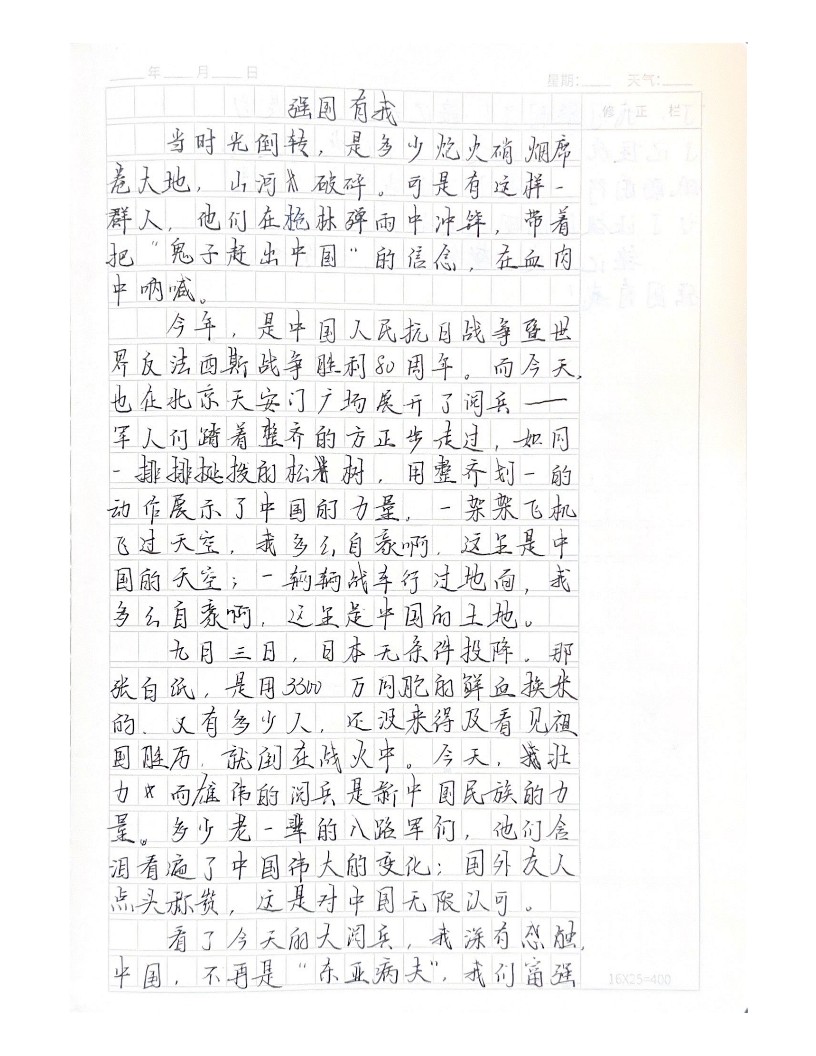 年 月 日
星期: 天气:
修 正 栏
强国有我
当时光倒转，是多少炮火硝烟席
卷大地，山河破碎。可是有这样一
群人，他们在枪林弹雨中冲锋，带着
把“鬼子赶出中国”的信念，在血肉
中呐喊。
今年，是中国人民抗日战争暨世
界反法西斯战争胜利80周年。而今天，
也在北京天安门广场展开了阅兵——
军人们踏着整齐的方正步走过，如同
一排排挺拔的松树，用整齐划一的
动作展示了中国的力量，一架架飞机
飞过天空，我多么自豪啊，这里是中
国的天空；一辆辆战车行过地面，我
多么自豪啊，这里是中国的土地。
九月三日，日本无条件投降。那
张白纸，是用3500万同胞的鲜血换来
的。又有多少人，还没来得及看见祖
国胜历，就倒在战火中。今天，壮
力而雄伟的阅兵是新中国民族的力
量。多少老一辈的八路军们，他们含
泪看遍了中国伟大的变化；国外友人
点头称赞，这是对中国无限认可。
看了今天的大阅兵，我深有感触，
中国，不再是“东亚病夫”，我们富强
16X25=400